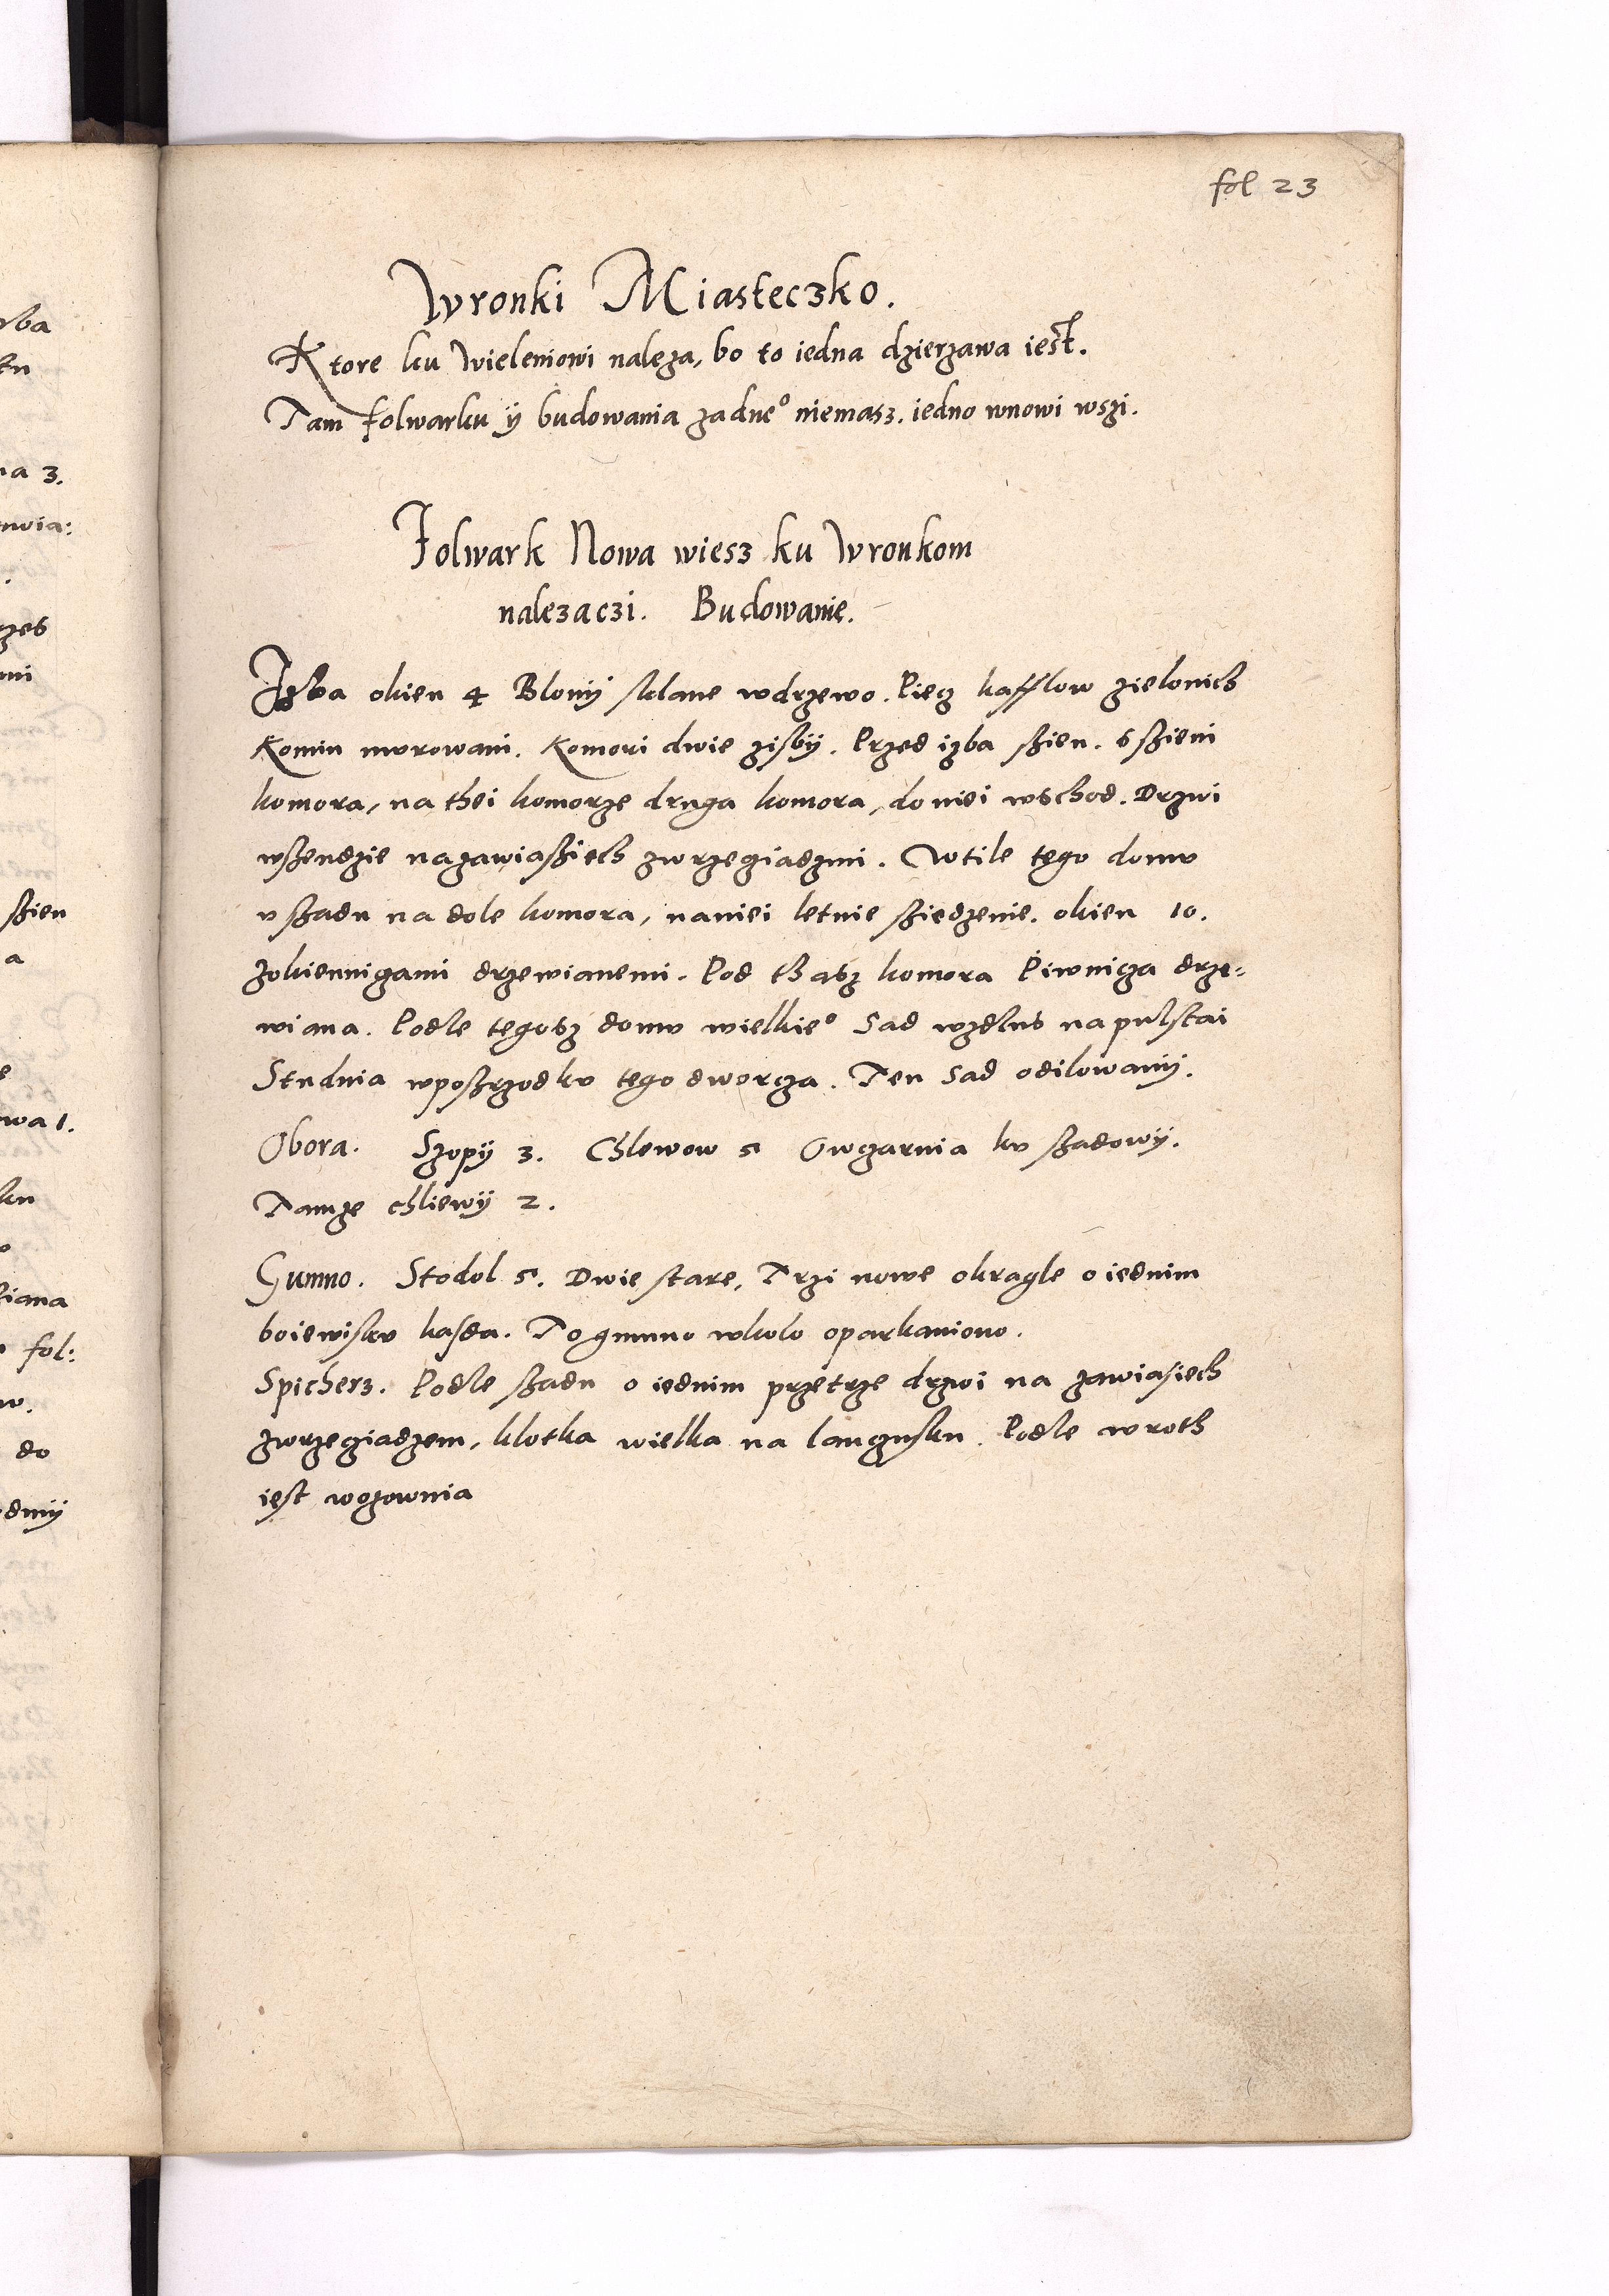 fol 23
Wronki Miasteczko.
Ktore ku Wieleniowi naleza, bo to iedna dzierzawa iest.
Tam folwarku ÿ budowania zadne° niemasz. iedno wnowi wszi.
Folwark Nowa wiesz ku Wronkom
nalezaczi. Budowanie.
Izba okien 4 Blonÿ sklane wdrzewo. Piecz kafflow zielonich
Komin murowani. Komori dwie zisbÿ. Przed izba szien. s szieni
komora, na thei komorze druga komora, do niei wschod. Drzwi
wszendzie nazawiasziech zwrzecziadzmi. Wtile tego domu
v szadu na dole komora, naniei letnie sziedzenie. okien 10.
zokienniczami drzewianemi. Pod thasz komora Piwnicza drze-
wiana. Podle tegosz domu wielkie° Sad wzdlus na pulstai
Studnia wposzrzodku tego dworcza. Ten Sad odilowanÿ.
Obora. Szopÿ 3. Chlewow 5 Owczarnia ku szadowÿ.
Tamze chliewÿ 2.
Gumno. Stodol 5. Dwie stare, Trzi nowe okragle o iednim
boiewisku kasda. To gumno wkolo oparkaniono.
Spicherz. Podle szadu o iednim przetrze drzwi na zawiasiech
zwrzecziadzem, klotka wielka na lanczusku. Podle wroth
iest wozownia